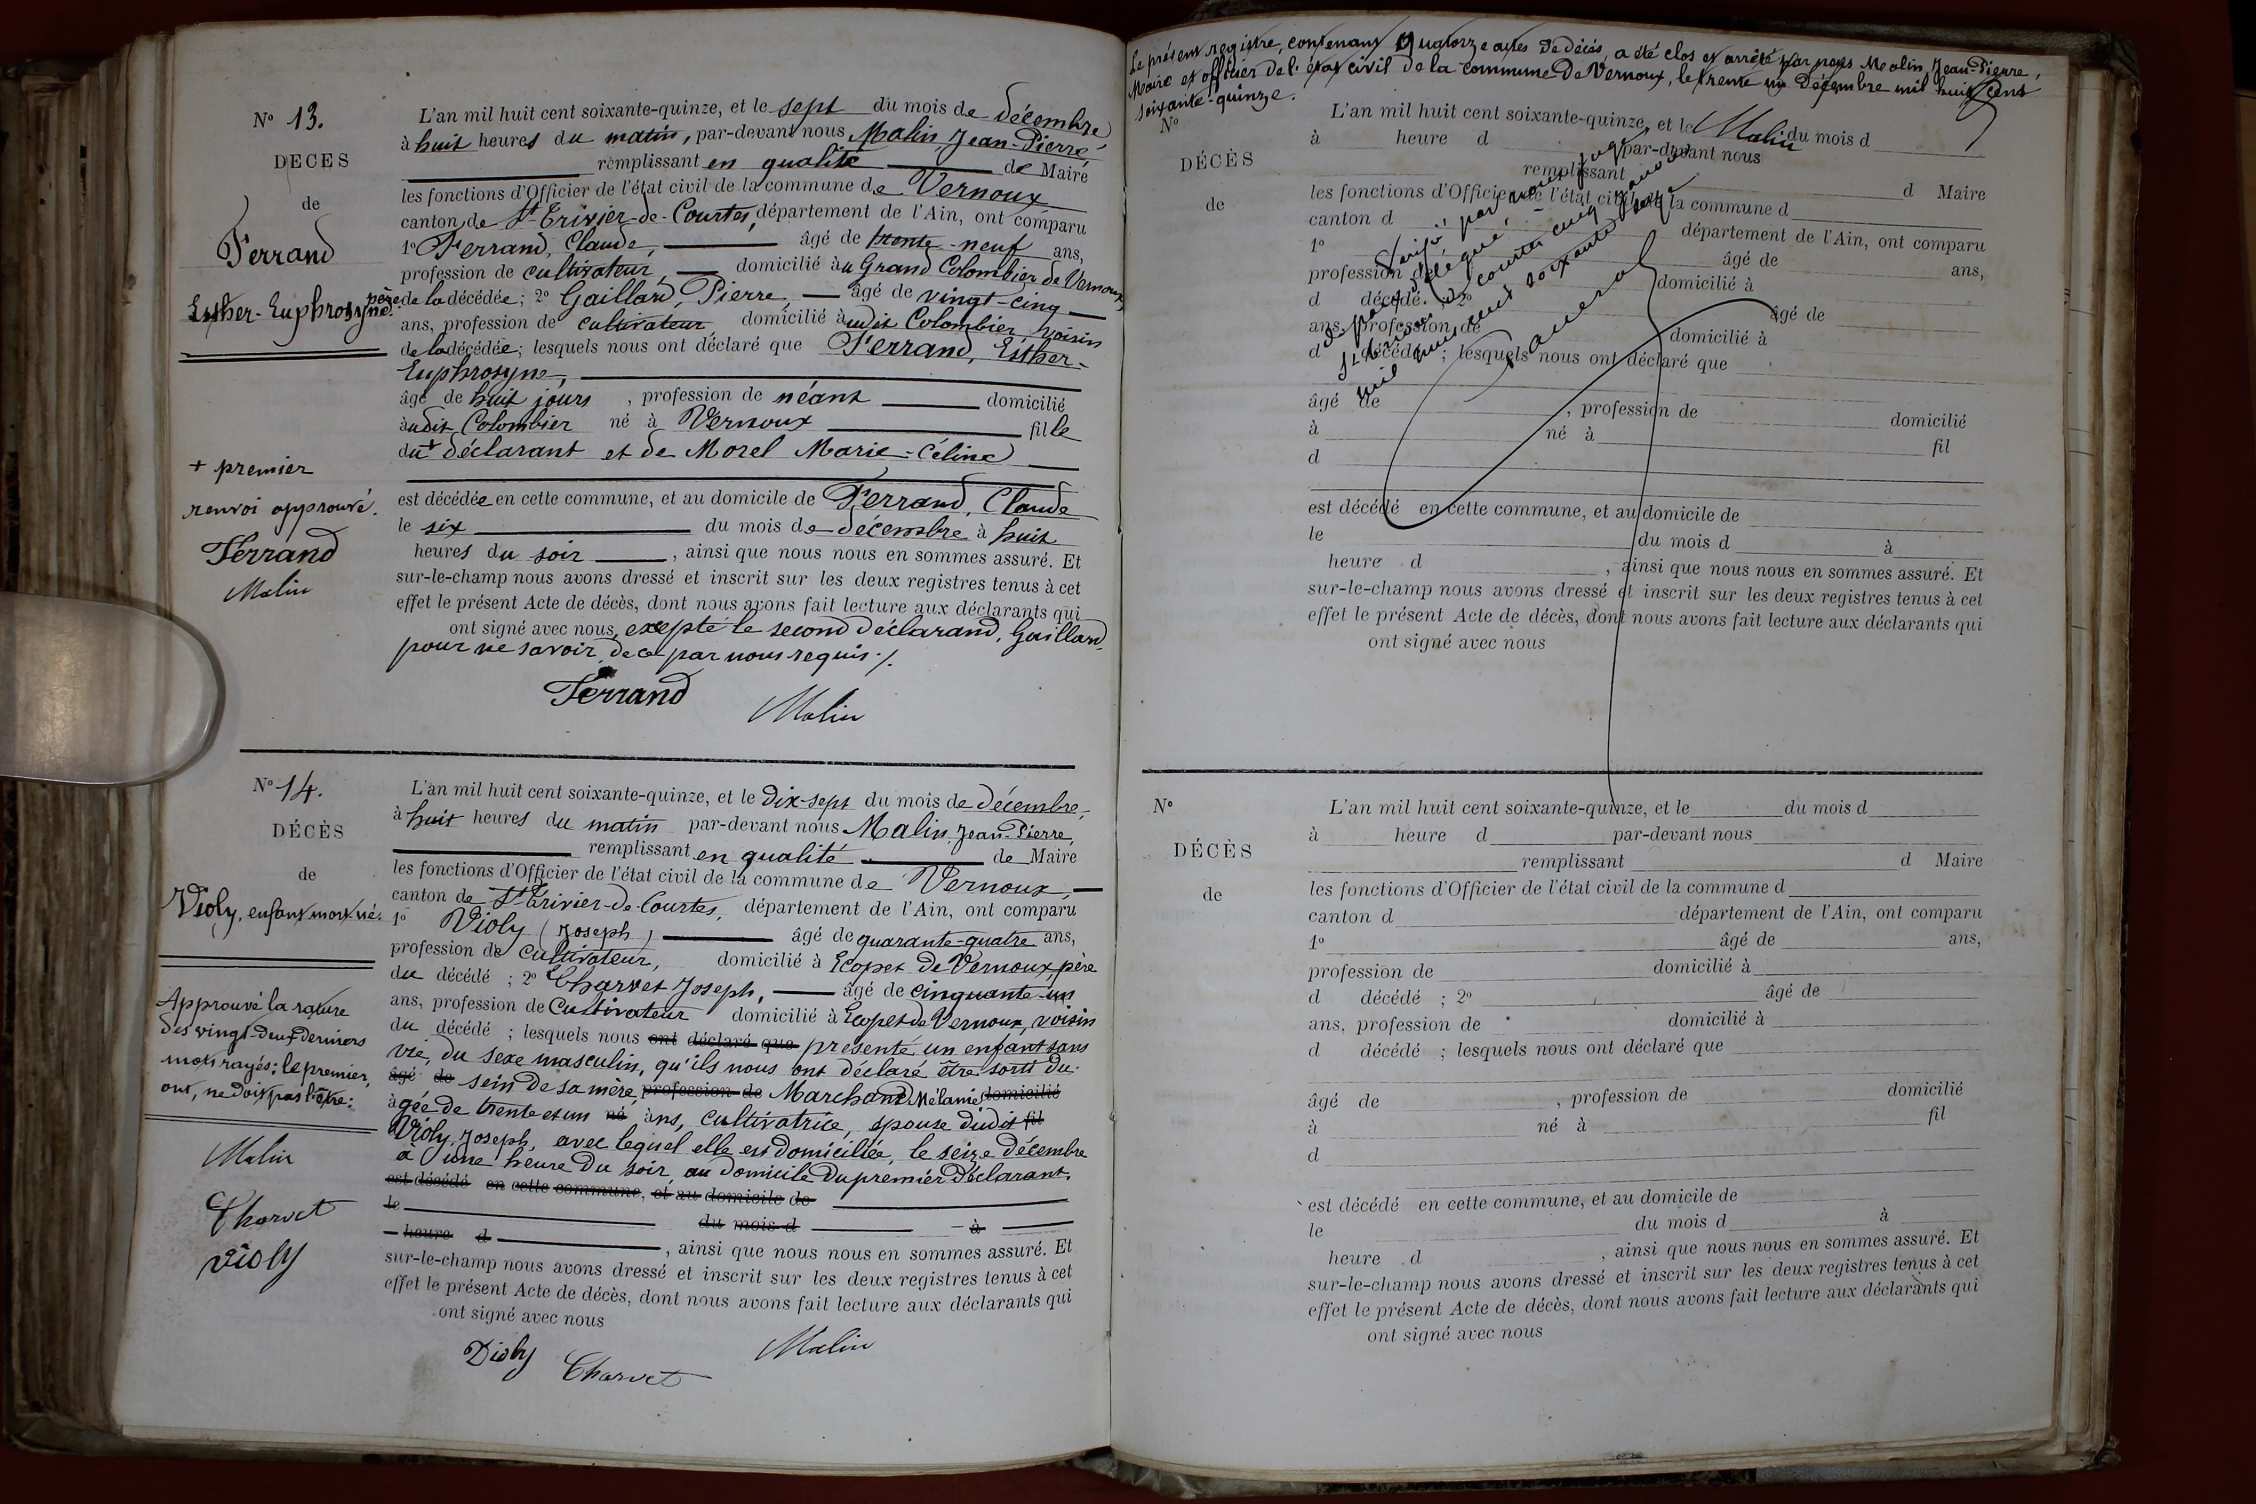 N° 13.
DÉCÈS
de
Ferrand
Esther-Euphrosyne.
+ premier
renvoi approuvé.
Ferrand
Malin
L'an mil huit cent soixante-quinze, et le sept du mois de décembre
à huit heures du matin, par-devant nous Malin, Jean-Pierre,
remplissant en qualité de Maire
les fonctions d'Officier de l'état civil de la commune de Vernoux
canton de St Trivier-de-Courtes, département de l'Ain, ont comparu
1° Ferrand, Claude, âgé de trente-neuf ans,
profession de cultivateur, domicilié au Grand Colombier de Vernoux,
père de la décédée ; 2° Gaillard, Pierre, âgé de vingt-cinq
ans, profession de cultivateur, domicilié audit Colombier, voisin
de la décédée ; lesquels nous ont déclaré que Ferrand, Esther-
Euphrosyne,
âgé de huit jours, profession de néant domicilié
audit Colombier né à Vernoux fille
du + déclarant et de Morel Marie-Céline
est décédée en cette commune, et au domicile de Ferrand, Claude
le six du mois de décembre à huit
heures du soir, ainsi que nous nous en sommes assuré. Et
sur-le-champ nous avons dressé et inscrit sur les deux registres tenus à cet
effet le présent Acte de décès, dont nous avons fait lecture aux déclarants qui
ont signé avec nous, excepté le second déclarand, Gaillard,
pour ne savoir, de ce par nous requis ./.
Ferrand
Malin
N° 14.
DÉCÈS
de
Violy, enfant mort-né.
Approuvé la rature
des vingt-deux derniers
mots rayés ; le premier,
ont, ne doit pas l'être :
Malin
Charvet
Violy
L'an mil huit cent soixante-quinze, et le dix-sept du mois de décembre,
à huit heures du matin par-devant nous Malin, Jean-Pierre,
remplissant en qualité de Maire
les fonctions d'Officier de l'état civil de la commune de Vernoux,
canton de St Trivier-de-Courtes, département de l'Ain, ont comparu
1° Violy (Joseph) âgé de quarante-quatre ans,
profession de cultivateur, domicilié à Ecopet de Vernoux, père
du décédé ; 2° Charvet Joseph, âgé de cinquante-un
ans, profession de Cultivateur domicilié à Ecopet de Vernoux, voisin
du décédé ; lesquels nous ont déclaré que présenté un enfant sans
vie, du sexe masculin, qu'ils nous ont déclaré être sorti du
âgé de sein de sa mère, profession de Marchand Mélanie, domicilié
âgée de trente et un né ans, cultivatrice, épouse dudit fil
Violy, Joseph, avec lequel elle est domiciliée, le seize décembre
à une heure du soir, au domicile du premier déclarant.
est décédé en cette commune, et au domicile de
le du mois d à
heure d, ainsi que nous nous en sommes assuré. Et
sur-le-champ nous avons dressé et inscrit sur les deux registres tenus à cet
effet le présent Acte de décès, dont nous avons fait lecture aux déclarants qui
ont signé avec nous
Violy
Charvet
Malin
Le présent registre, contenant quatorze actes de décès, a été clos et arrêté par nous Malin, Jean-Pierre,
Maire et officier de l'état civil de la commune de Vernoux, le trente un Décembre mil huit cent
soixante-quinze.
Malin
Vérifié par nous juge
de paix délégué
St Trivier de Courtes cinq
mil huit cent soixante seize
N°
DÉCÈS
de
L'an mil huit cent soixante-quinze, et le du mois d
à heure d par-devant nous
remplissant d Maire
les fonctions d'Officier de l'état civil de la commune d
canton d département de l'Ain, ont comparu
1° âgé de ans,
profession de domicilié à
d décédé ; 2° âgé de
ans, profession de domicilié à
d décédé ; lesquels nous ont déclaré que
âgé de , profession de domicilié
à né à fil
d
est décédé en cette commune, et au domicile de
le du mois d à
heure d , ainsi que nous nous en sommes assuré. Et
sur-le-champ nous avons dressé et inscrit sur les deux registres tenus à cet
effet le présent Acte de décès, dont nous avons fait lecture aux déclarants qui
ont signé avec nous
N°
DÉCÈS
de
L'an mil huit cent soixante-quinze, et le du mois d
à heure d par-devant nous
remplissant d Maire
les fonctions d'Officier de l'état civil de la commune d
canton d département de l'Ain, ont comparu
1° âgé de ans,
profession de domicilié à
d décédé ; 2° âgé de
ans, profession de domicilié à
d décédé ; lesquels nous ont déclaré que
âgé de , profession de domicilié
à né à fil
d
est décédé en cette commune, et au domicile de
le du mois d à
heure d , ainsi que nous nous en sommes assuré. Et
sur-le-champ nous avons dressé et inscrit sur les deux registres tenus à cet
effet le présent Acte de décès, dont nous avons fait lecture aux déclarants qui
ont signé avec nous